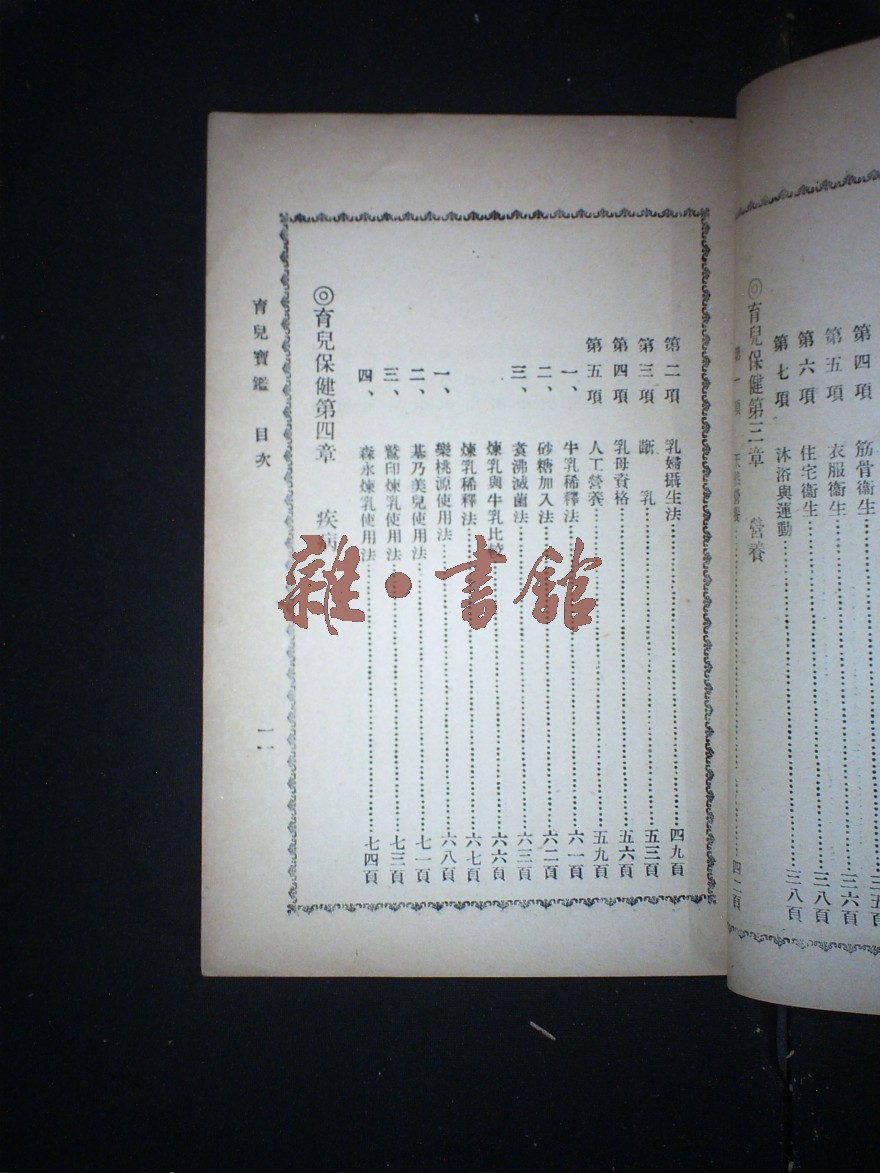 第四項 筋骨衞生 三五頁
第五項 衣服衞生 三六頁
第六項 住宅衞生 三八頁
第七項 沐浴與運動 三八頁
◎育兒保健第三章 營養
第一項 天然營養 四二頁
第二項 乳婦攝生法 四九頁
第三項 斷乳 五三頁
第四項 乳母資格 五六頁
第五項 人工營養 五九頁
一、牛乳稀釋法 六一頁
二、砂糖加入法 六二頁
三、煑沸滅菌法 六三頁
煉乳與牛乳比較 六六頁
煉乳稀釋法 六七頁
一、樂桃源使用法 六八頁
二、基乃美兒使用法 七一頁
三、鷲印煉乳使用法 七三頁
四、森永煉乳使用法 七四頁
◎育兒保健第四章 疾病
育兒寶鑑 目次 一一
雜·書館